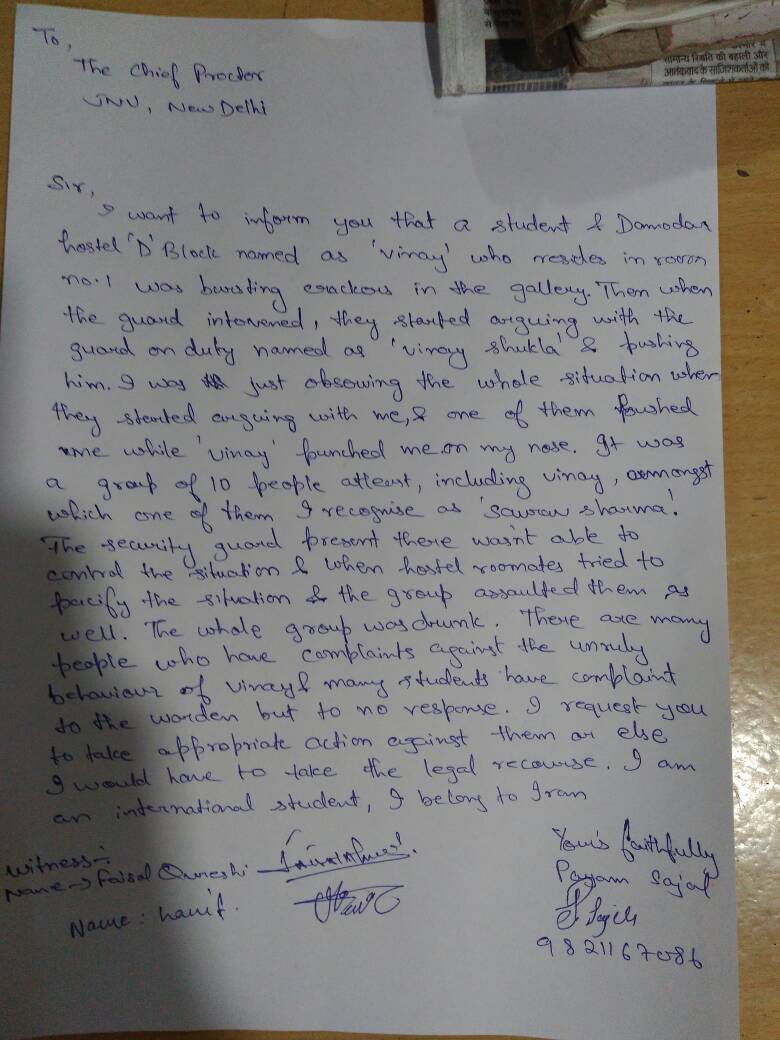 सामान्य स्थिति की बहाली और
आतंकवाद के साजिशकर्ताओं को
To,
The Chief Proctor
JNU, New Delhi
Sir,
I want to inform you that a student & Damodar
hostel 'D' Block named as 'vinay' who resides in room
no.1 was bursting crackers in the gallery. Then when
the guard intervened, they started arguing with the
guard on duty named as 'vinay shukla' & pushing
him. I was just observing the whole situation when
they started arguing with me, & one of them pushed
me while 'vinay' punched me on my nose. It was
a group of 10 people atleast, including vinay, amongst
which one of them I recognise as 'Saurav sharma'.
The security guard present there wasn't able to
control the situation & when hostel roomates tried to
pacify the situation & the group assaulted them as
well. The whole group was drunk. There are many
people who have complaints against the unruly
behaviour of vinay & many students have complaint
to the warden but to no response. I request you
to take appropriate action against them or else
I would have to take the legal recourse. I am
an international student, I belong to Iran
Witness:-
Name -> Faisal Qureshi
Name: hanif.
Your's faithfully
Payam Sajal
9821167086